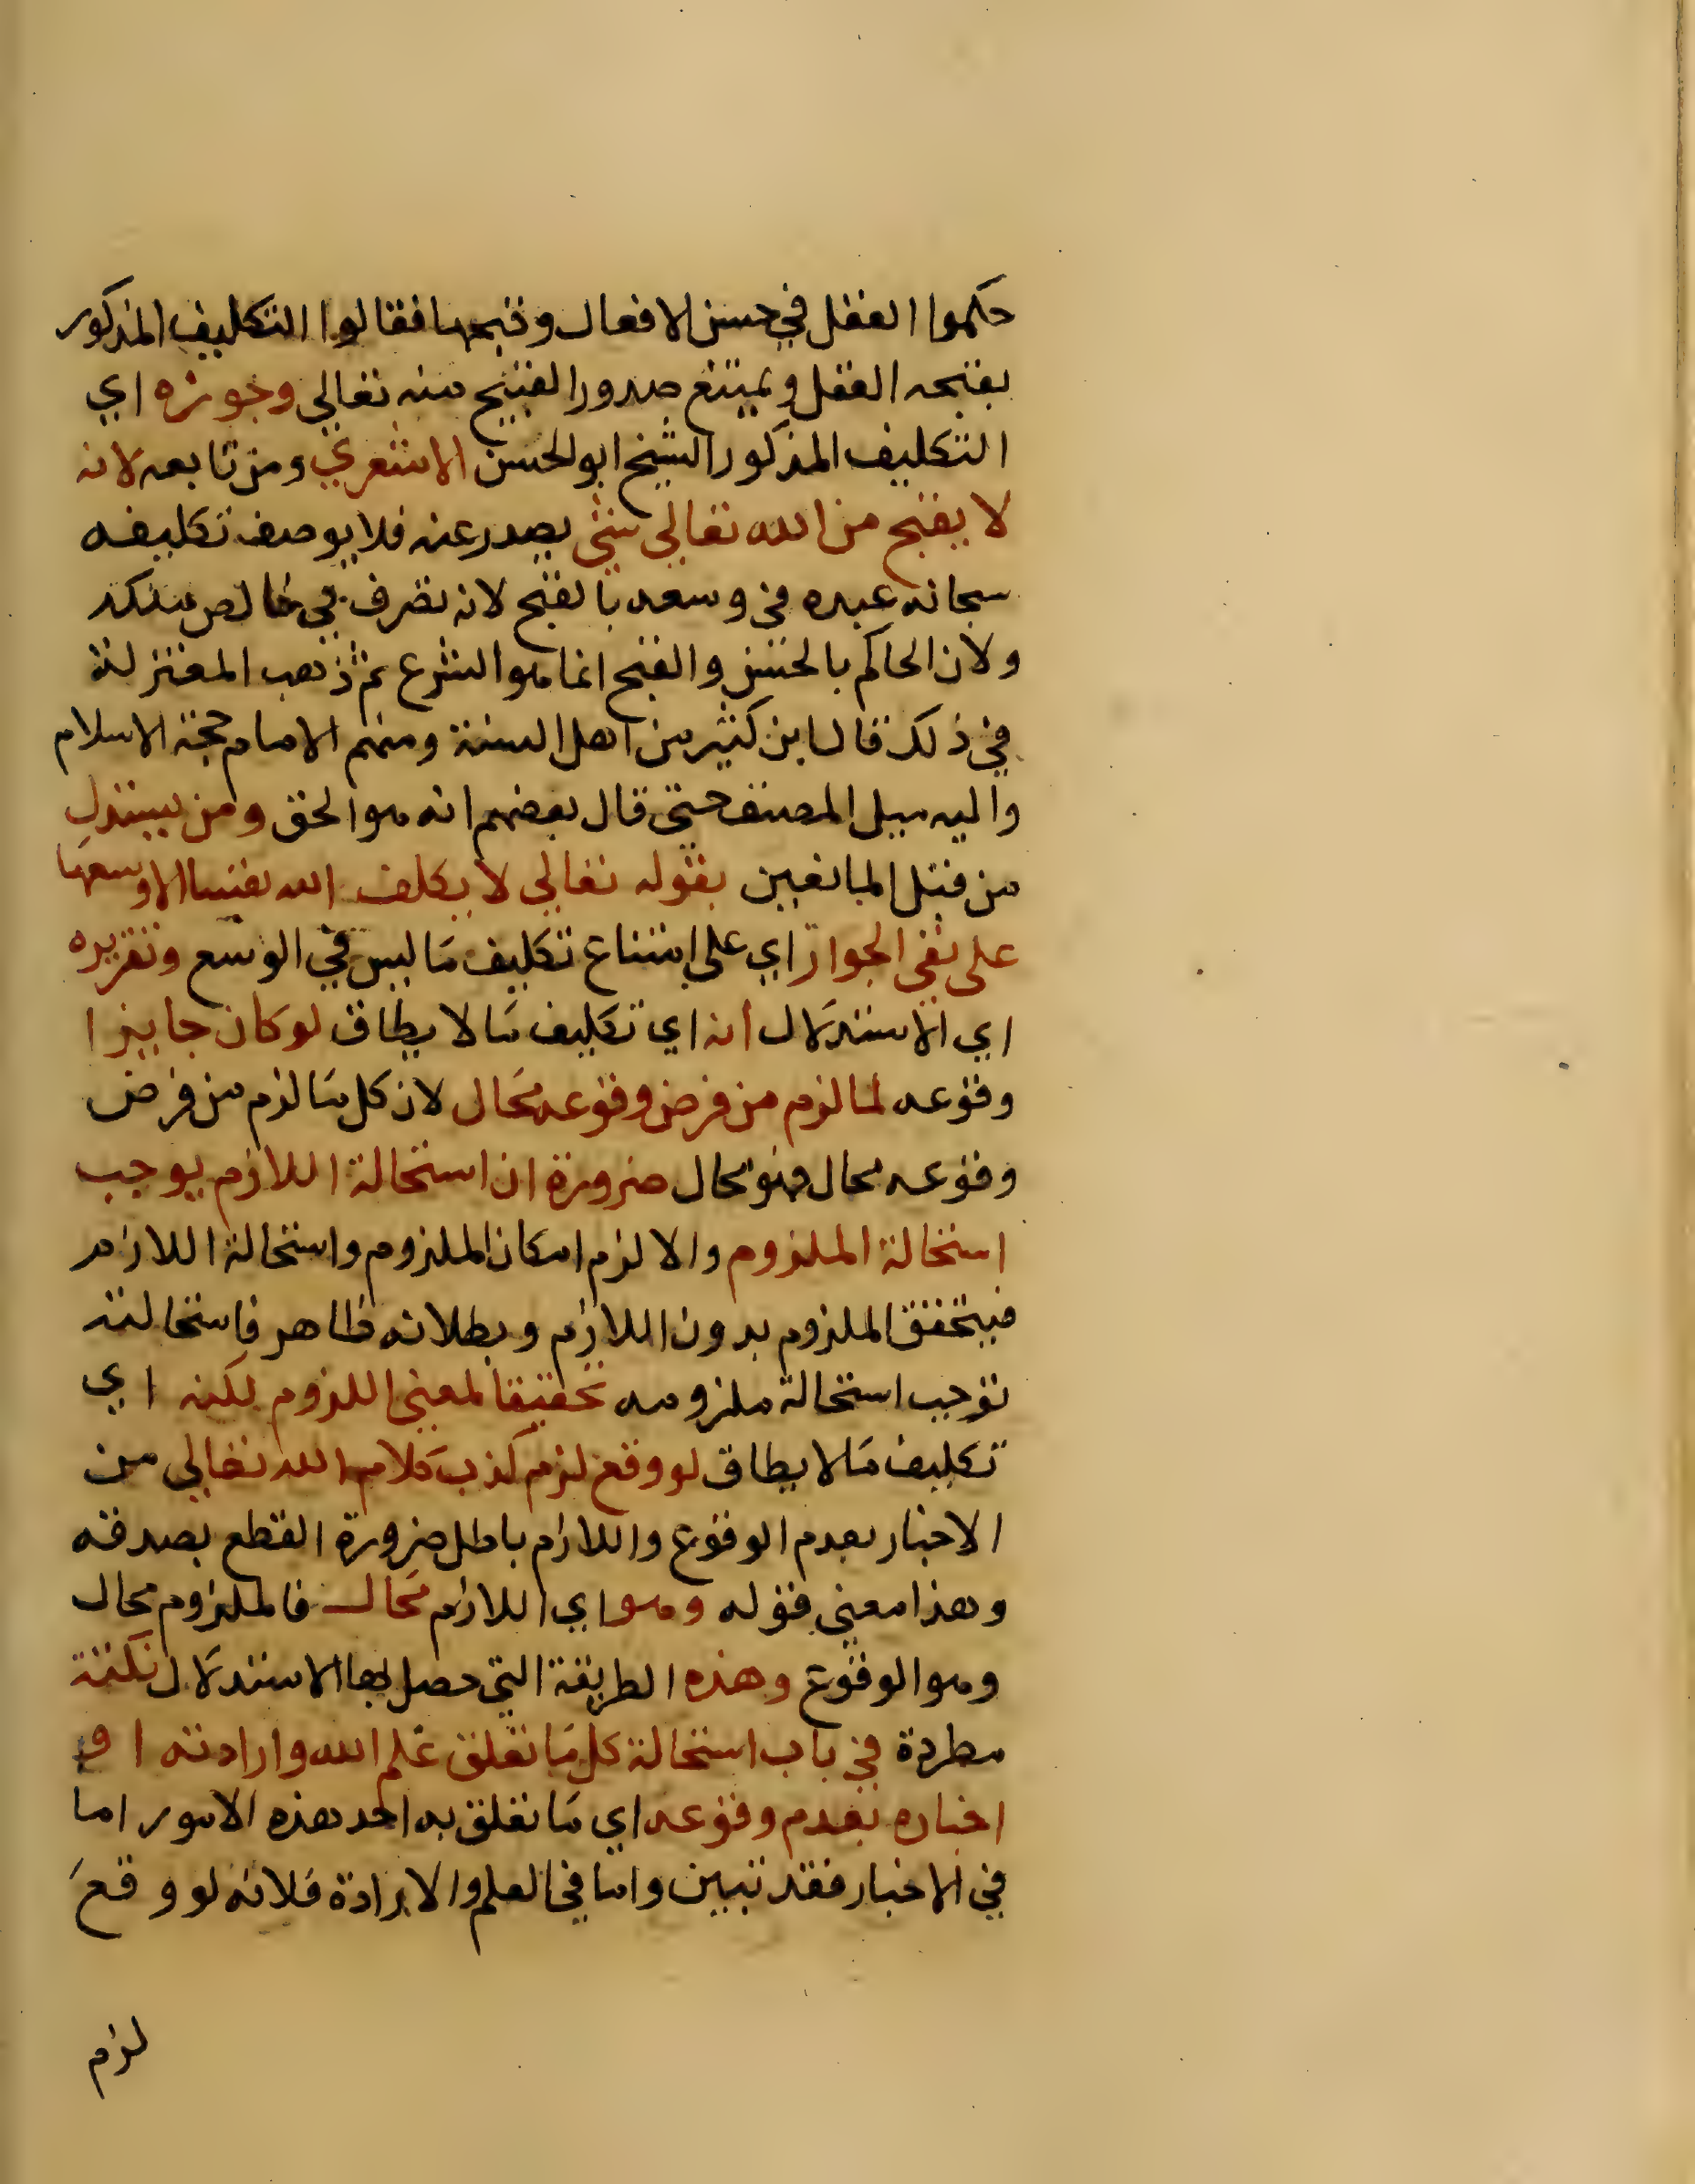 حكموا العقل في حسن الافعال وقبحها فقالوا التكليف المذكور
يقبحه العقل ويمتنع صدور القبيح منه تعالي وجوزه اي
التكليف المذكور الشيخ ابو الحسن الاشعري ومن تابعه لانه
لا يقبح من الله تعالي شي يصدر عنه فلا يوصف تكليفه
سبحانه عبده في وسعه بالقبح لانه تصرف في خالص ملكه
ولان الحاكم بالحسن والقبح انما هو الشرع ثم ذهب المعتزلة
في ذلك قال به كثير من اهل السنة ومنهم الامام حجة الاسلام
واليه ميل المصنف حتي قال بعضهم انه هو الحق ومن يستدل
من قبل المانعين بقوله تعالي لا يكلف الله نفسا الا وسعها
علي نفي الجواز اي علي امتناع تكليف ما ليس في الوسع وتقريره
اي الاستدلال انه اي تكليف ما لا يطاق لو كان جايزا
وقوعه لما لزم من فرض وقوعه محال لان كل ما لزم من فرض
وقوعه محال فهو محال ضرورة ان استحالة اللازم يوجب
استحالة الملزوم والا لزم امكان الملزوم واستحالة اللازم
فيتحقق الملزوم بدون اللازم وبطلانه ظاهر فاستحالته
توجب استحالة ملزومه تحقيقا لمعني اللزوم لكنه اي
تكليف ما لا يطاق لو وقع لزم كذب كلام الله تعالي من
الاخبار بعدم الوقوع واللازم باطل ضرورة القطع بصدقه
وهذا معني قوله وهو اي اللازم محال فالملزوم محال
وهو الوقوع وهذه الطريقة التي حصل بها الاستدلال نكتة
مطردة في باب استحالة كل ما تعلق علم الله وارادته او
اخباره بعدم وقوعه اي ما تعلق به احد هذه الامور اما
في الاخبار فقد تبين واما في العلم والارادة فلانه لو وقع
لزم